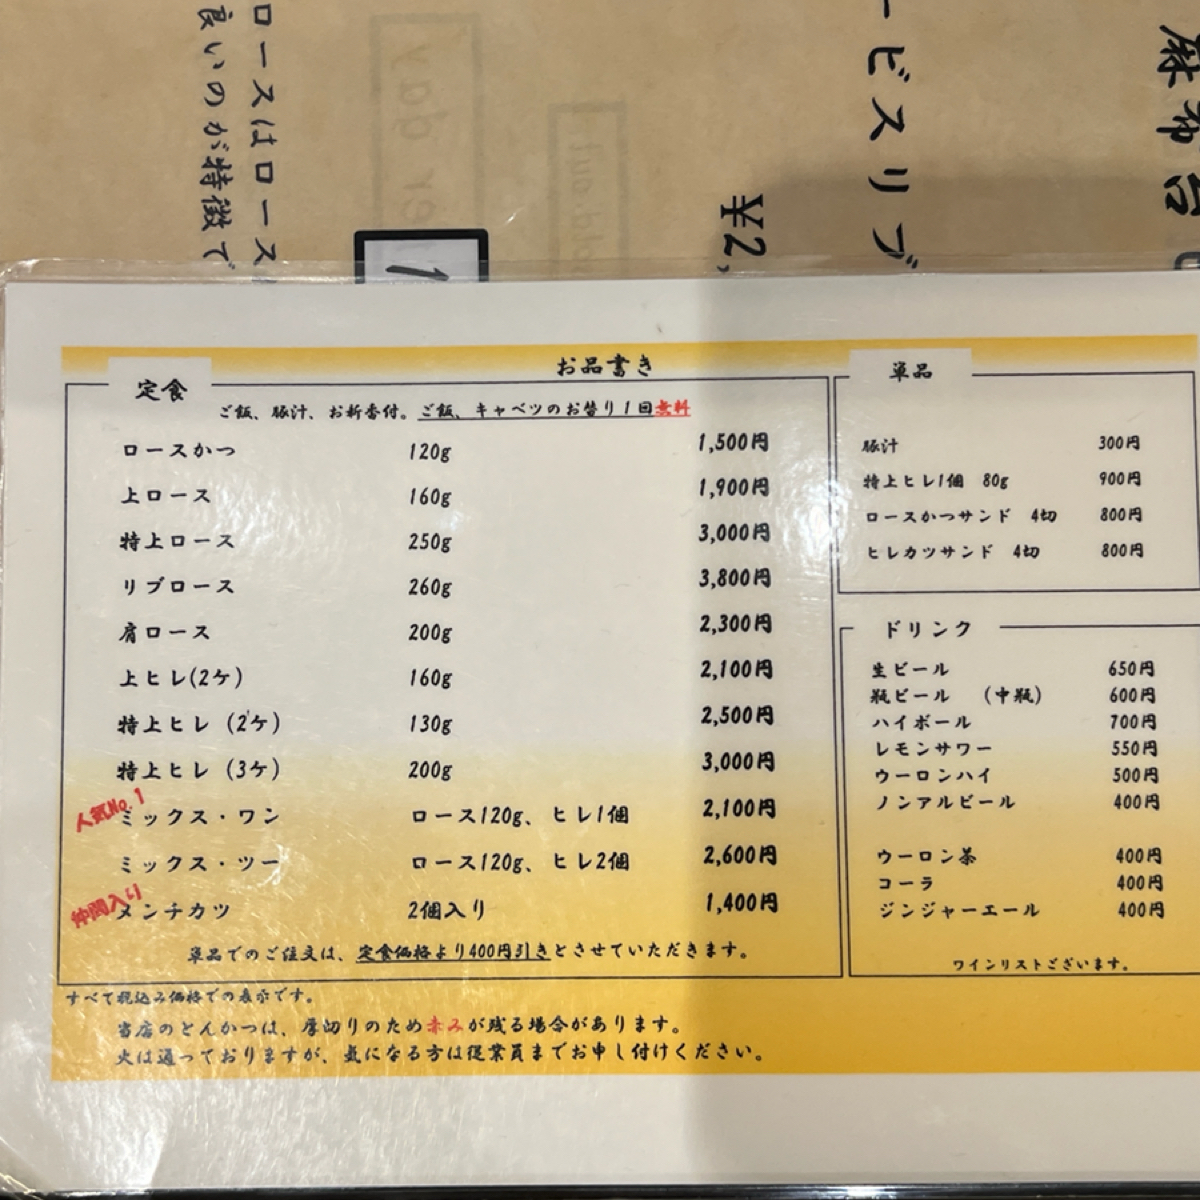 麻布台
ービスリブ
¥2,
ロースはロース
良いのが特徴で
1
お品書き
定食
ご飯、豚汁、お新香付。ご飯、キャベツのお替り1回無料
ロースかつ 120g 1,500円
上ロース 160g 1,900円
特上ロース 250g 3,000円
リブロース 260g 3,800円
肩ロース 200g 2,300円
上ヒレ(2ケ) 160g 2,100円
特上ヒレ (2ケ) 130g 2,500円
特上ヒレ (3ケ) 200g 3,000円
人気No.1
ミックス・ワン ロース120g、ヒレ1個 2,100円
ミックス・ツー ロース120g、ヒレ2個 2,600円
仲間入り
メンチカツ 2個入り 1,400円
単品でのご注文は、定食価格より400円引きとさせていただきます。
単品
豚汁 300円
特上ヒレ1個 80g 900円
ロースかつサンド 4切 800円
ヒレカツサンド 4切 800円
ドリンク
生ビール 650円
瓶ビール (中瓶) 600円
ハイボール 700円
レモンサワー 550円
ウーロンハイ 500円
ノンアルビール 400円
ウーロン茶 400円
コーラ 400円
ジンジャーエール 400円
ワインリストございます。
すべて税込み価格での表示です。
当店のとんかつは、厚切りのため赤みが残る場合があります。
火は通っておりますが、気になる方は従業員までお申し付けください。